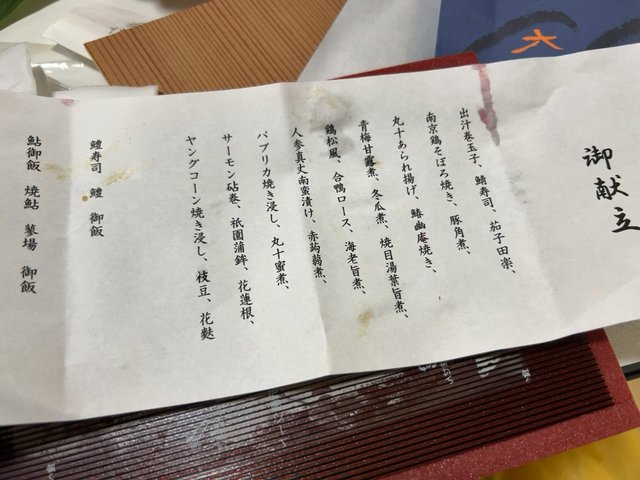 御献立
出汁巻玉子、鯖寿司、茄子田楽、
南京鶏そぼろ焼き、豚角煮、
丸十あられ揚げ、鰆幽庵焼き、
青梅甘露煮、冬瓜煮、焼目湯葉旨煮、
鶏松風、合鴨ロース、海老旨煮、
人参真丈南蛮漬け、赤蒟蒻煮、
パプリカ焼き浸し、丸十蜜煮、
サーモン砧巻、祇園蒲鉾、花蓮根、
ヤングコーン焼き浸し、枝豆、花麩
鱧寿司 鱧 御飯
鮎御飯 焼鮎 蓼場 御飯
大